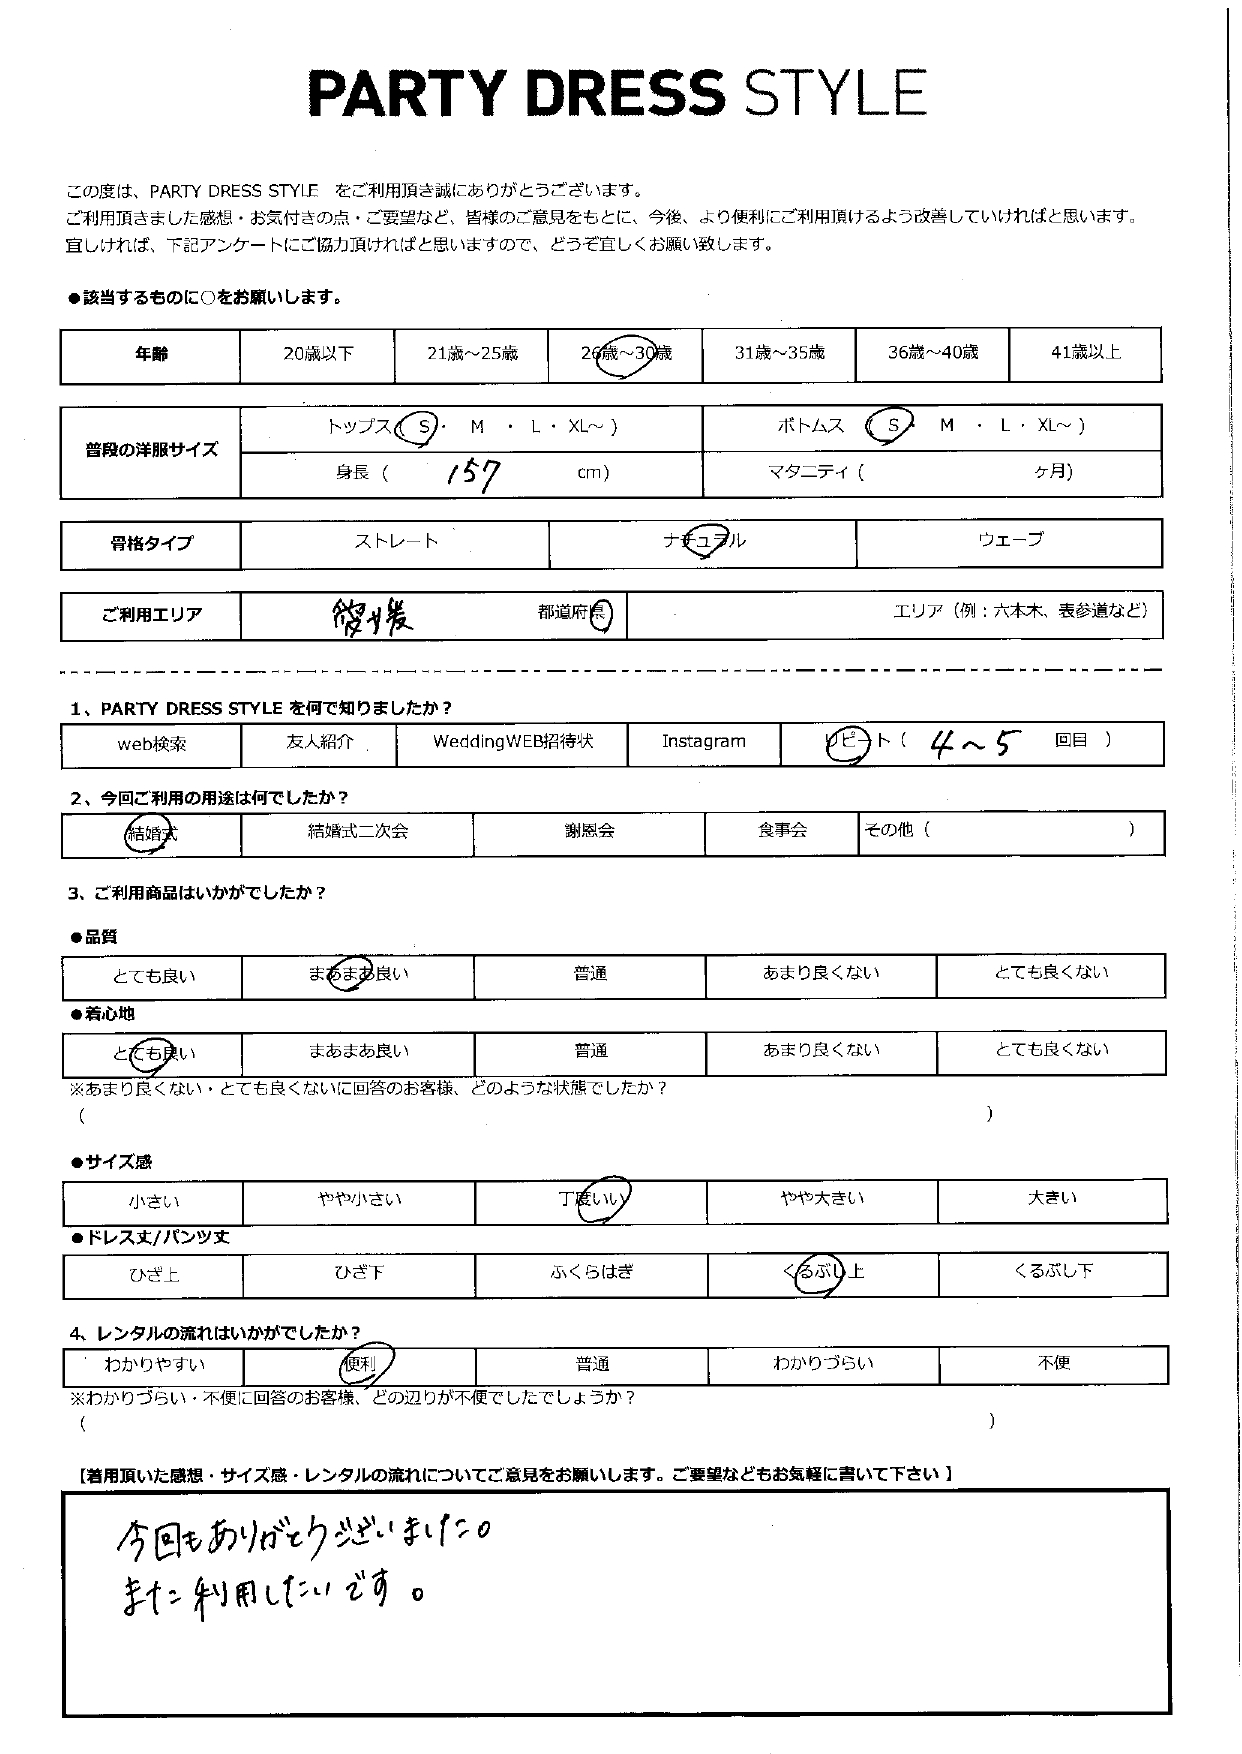 PARTY DRESS STYLE
この度は、PARTY DRESS STYLE をご利用頂き誠にありがとうございます。
ご利用頂きました感想・お気付きの点・ご要望など、皆様のご意見をもとに、今後、より便利にご利用頂けるよう改善していければと思います。
宜しければ、下記アンケートにご協力頂ければと思いますので、どうぞ宜しくお願い致します。
●該当するものに○をお願いします。
年齢 20歳以下 21歳～25歳 26歳～30歳 31歳～35歳 36歳～40歳 41歳以上
普段の洋服サイズ
トップス( S ・ M ・ L ・ XL～ ) ボトムス ( S ・ M ・ L ・ XL～ )
身長 ( 157 cm) マタニティ ( ヶ月)
骨格タイプ ストレート ナチュラル ウェーブ
ご利用エリア 愛媛 都道府県 エリア（例：六本木、表参道など）
1、PARTY DRESS STYLE を何で知りましたか？
web検索 友人紹介 WeddingWEB招待状 Instagram リピート（ 4～5 回目 ）
2、今回ご利用の用途は何でしたか？
結婚式 結婚式二次会 謝恩会 食事会 その他（ ）
3、ご利用商品はいかがでしたか？
●品質
とても良い まあまあ良い 普通 あまり良くない とても良くない
●着心地
とても良い まあまあ良い 普通 あまり良くない とても良くない
※あまり良くない・とても良くないに回答のお客様、どのような状態でしたか？
( )
●サイズ感
小さい やや小さい 丁度いい やや大きい 大きい
●ドレス丈/パンツ丈
ひざ上 ひざ下 ふくらはぎ くるぶし上 くるぶし下
4、レンタルの流れはいかがでしたか？
わかりやすい 便利 普通 わかりづらい 不便
※わかりづらい・不便に回答のお客様、どの辺りが不便でしたでしょうか？
( )
【着用頂いた感想・サイズ感・レンタルの流れについてご意見をお願いします。ご要望などもお気軽に書いて下さい】
今回もありがとうございました。
また利用したいです。